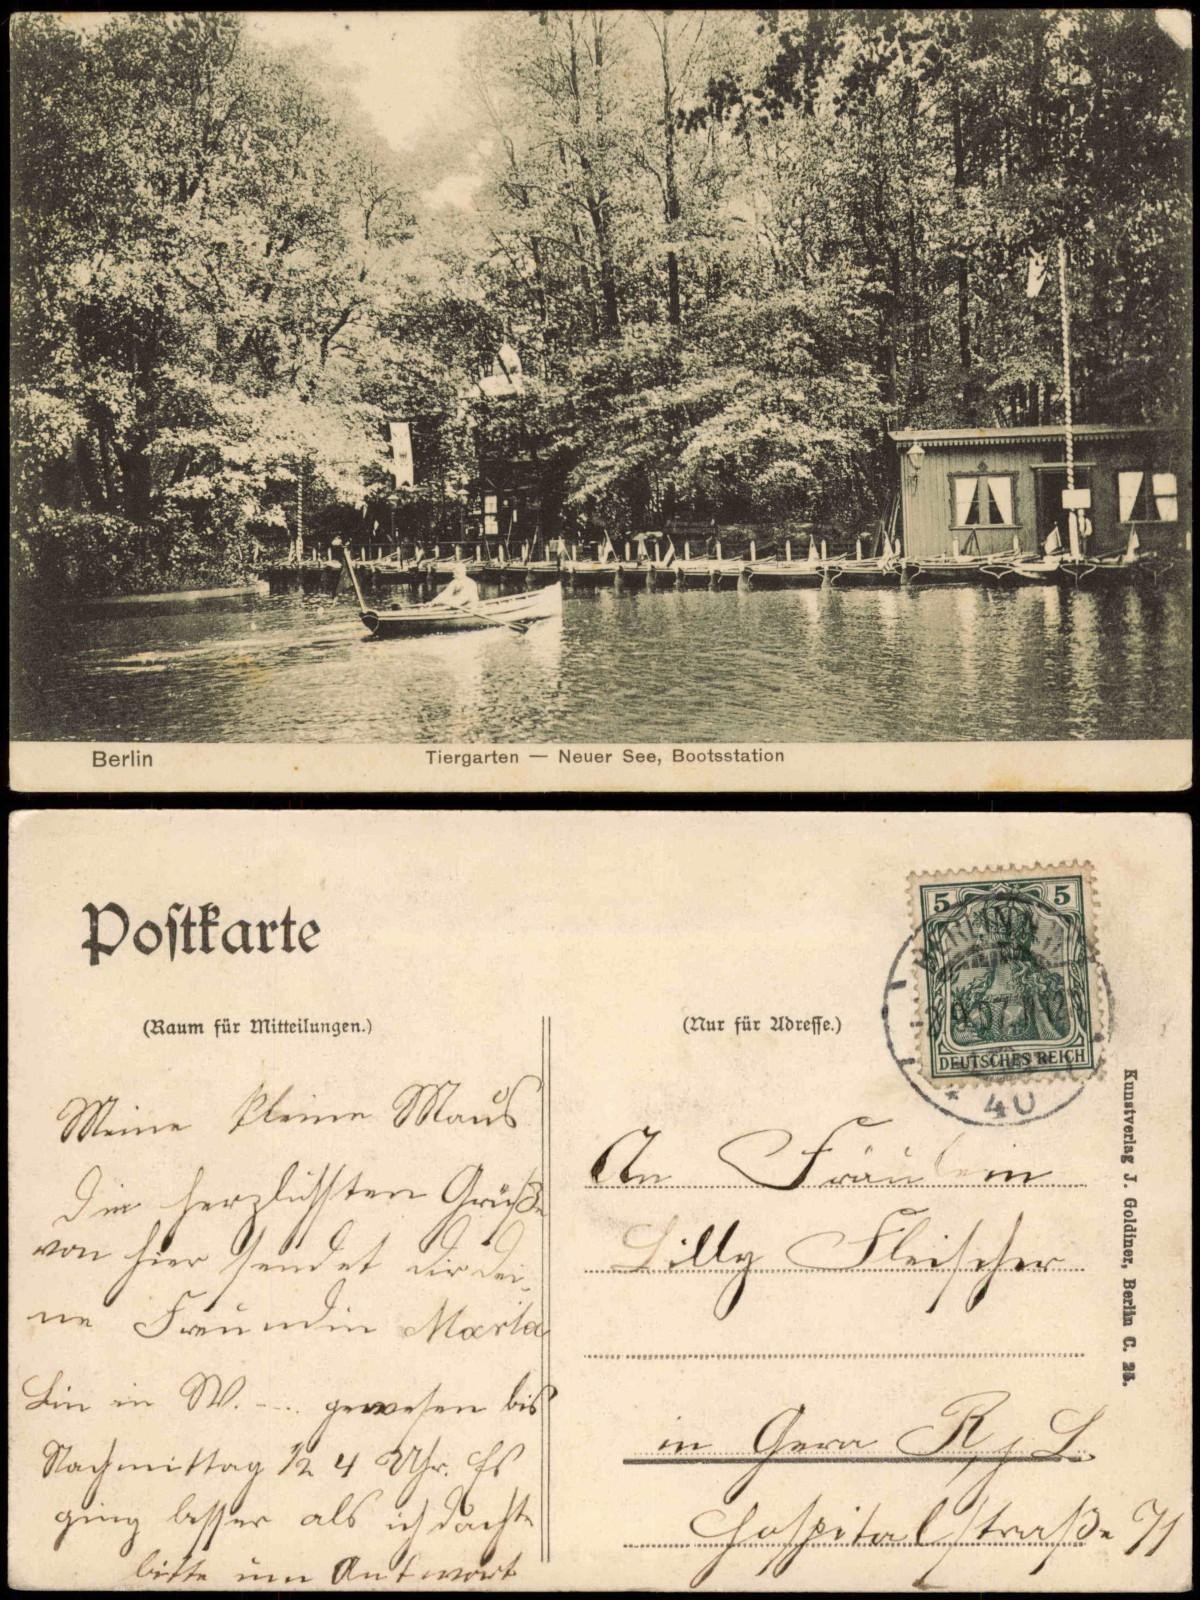 Berlin
Tiergarten — Neuer See, Bootsstation
Postkarte
(Raum für Mitteilungen.)
(Nur für Adresse.)
5 5
DEUTSCHES REICH
BERLIN
9.07. 11-12
* 40
Kunstverlag J. Goldiner, Berlin C. 25.
Meine kleine Maus
Die herzlichsten Grüße
von hier sendet dir dei
ne Freundin Marta
Bin in W. --.. gewesen bis
Nachmittag 1/2 4 Uhr. Es
ging besser als ich dachte
bitte um Antwort
An Fräulein
Lilly Fleischer
in Gera R. j. L.
Hospitalstraße 71